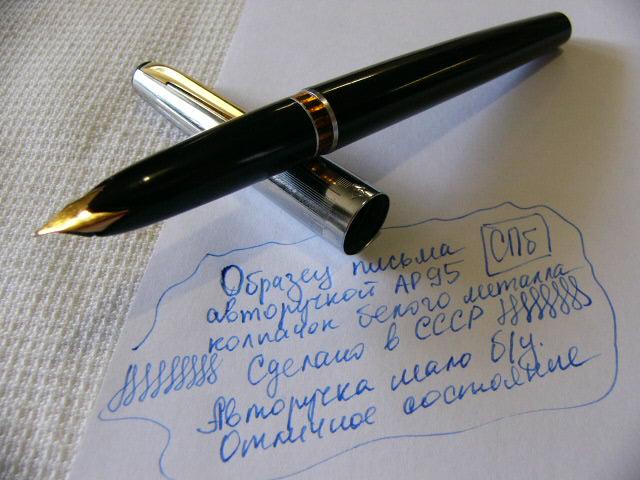 Образец письма СПб
авторучкой АР95
колпачок белого металла
Сделано в СССР
Авторучка мало б/у.
Отличное состояние